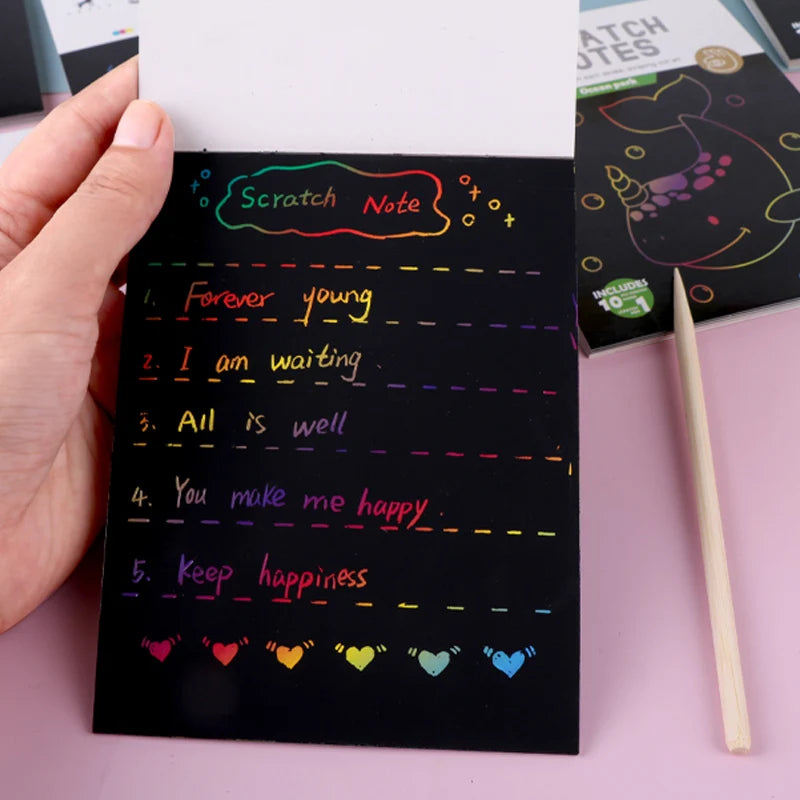 Scratch Note
1. Forever young
2. I am waiting.
3. All is well
4. You make me happy.
5. Keep happiness
NOTES
Ocean park
INCLUDES
10 1